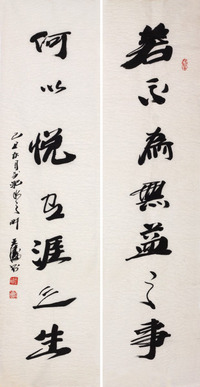 若不為無益之事
何以悅有涯之生